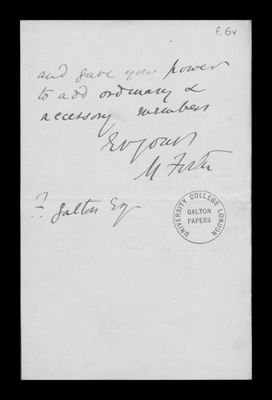 f. 6v
and gave you power
to add ordinary &
accessory members
Ev yours
M Foster
F. Galton Esq
UNIVERSITY COLLEGE LONDON
GALTON
PAPERS